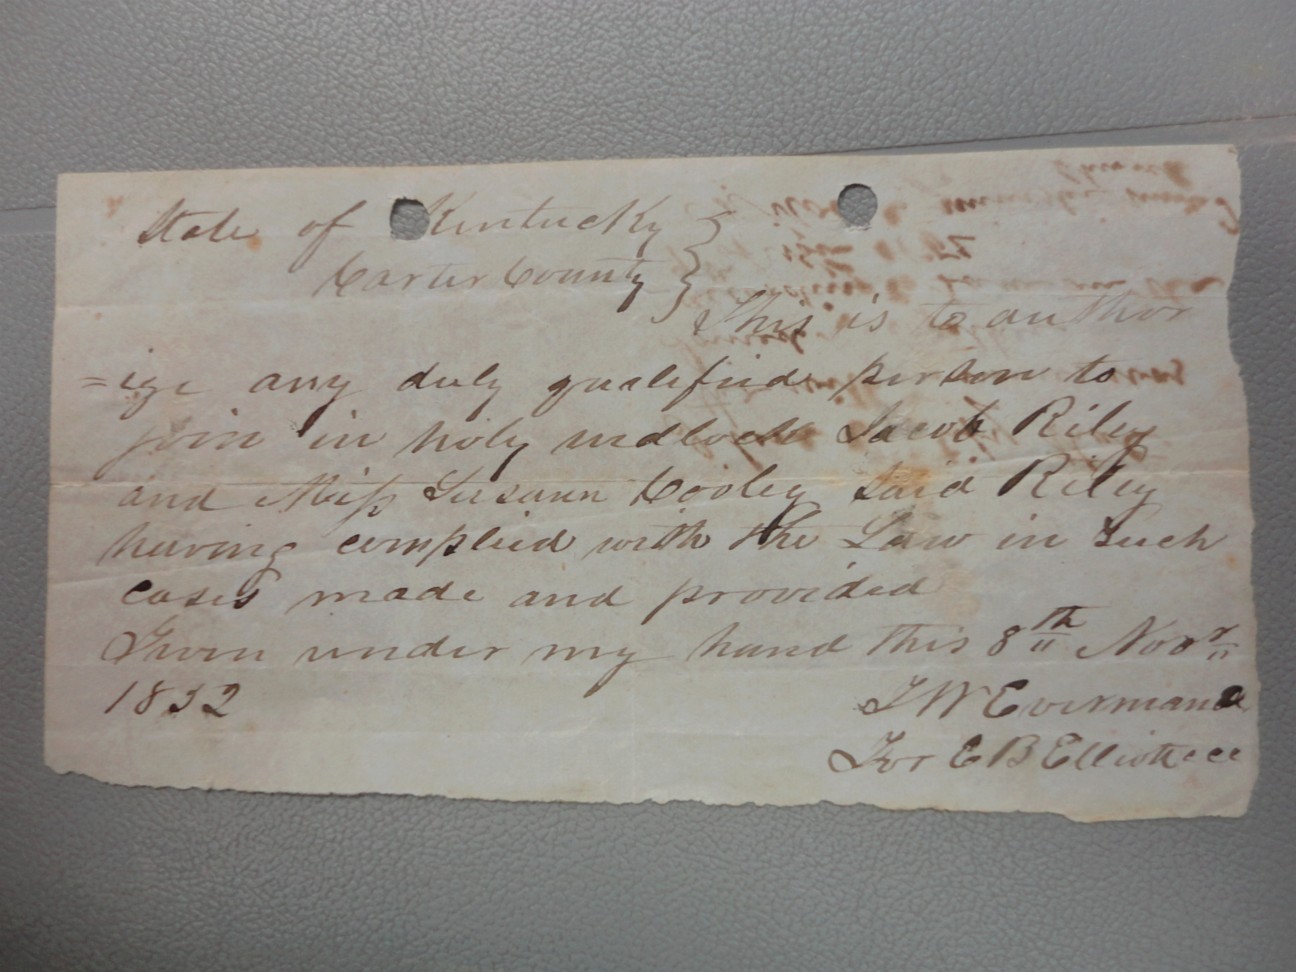 State of Kentucky }
Carter County }
This is to author
=ize any duly qualified person to
join in holy wedlock Jacob Riley
and Miss Susann Cooley said Riley
having complied with the Law in Such
cases made and provided
Given under my hand this 8th Novr
1852
J W Everman
For E B Elliott cc